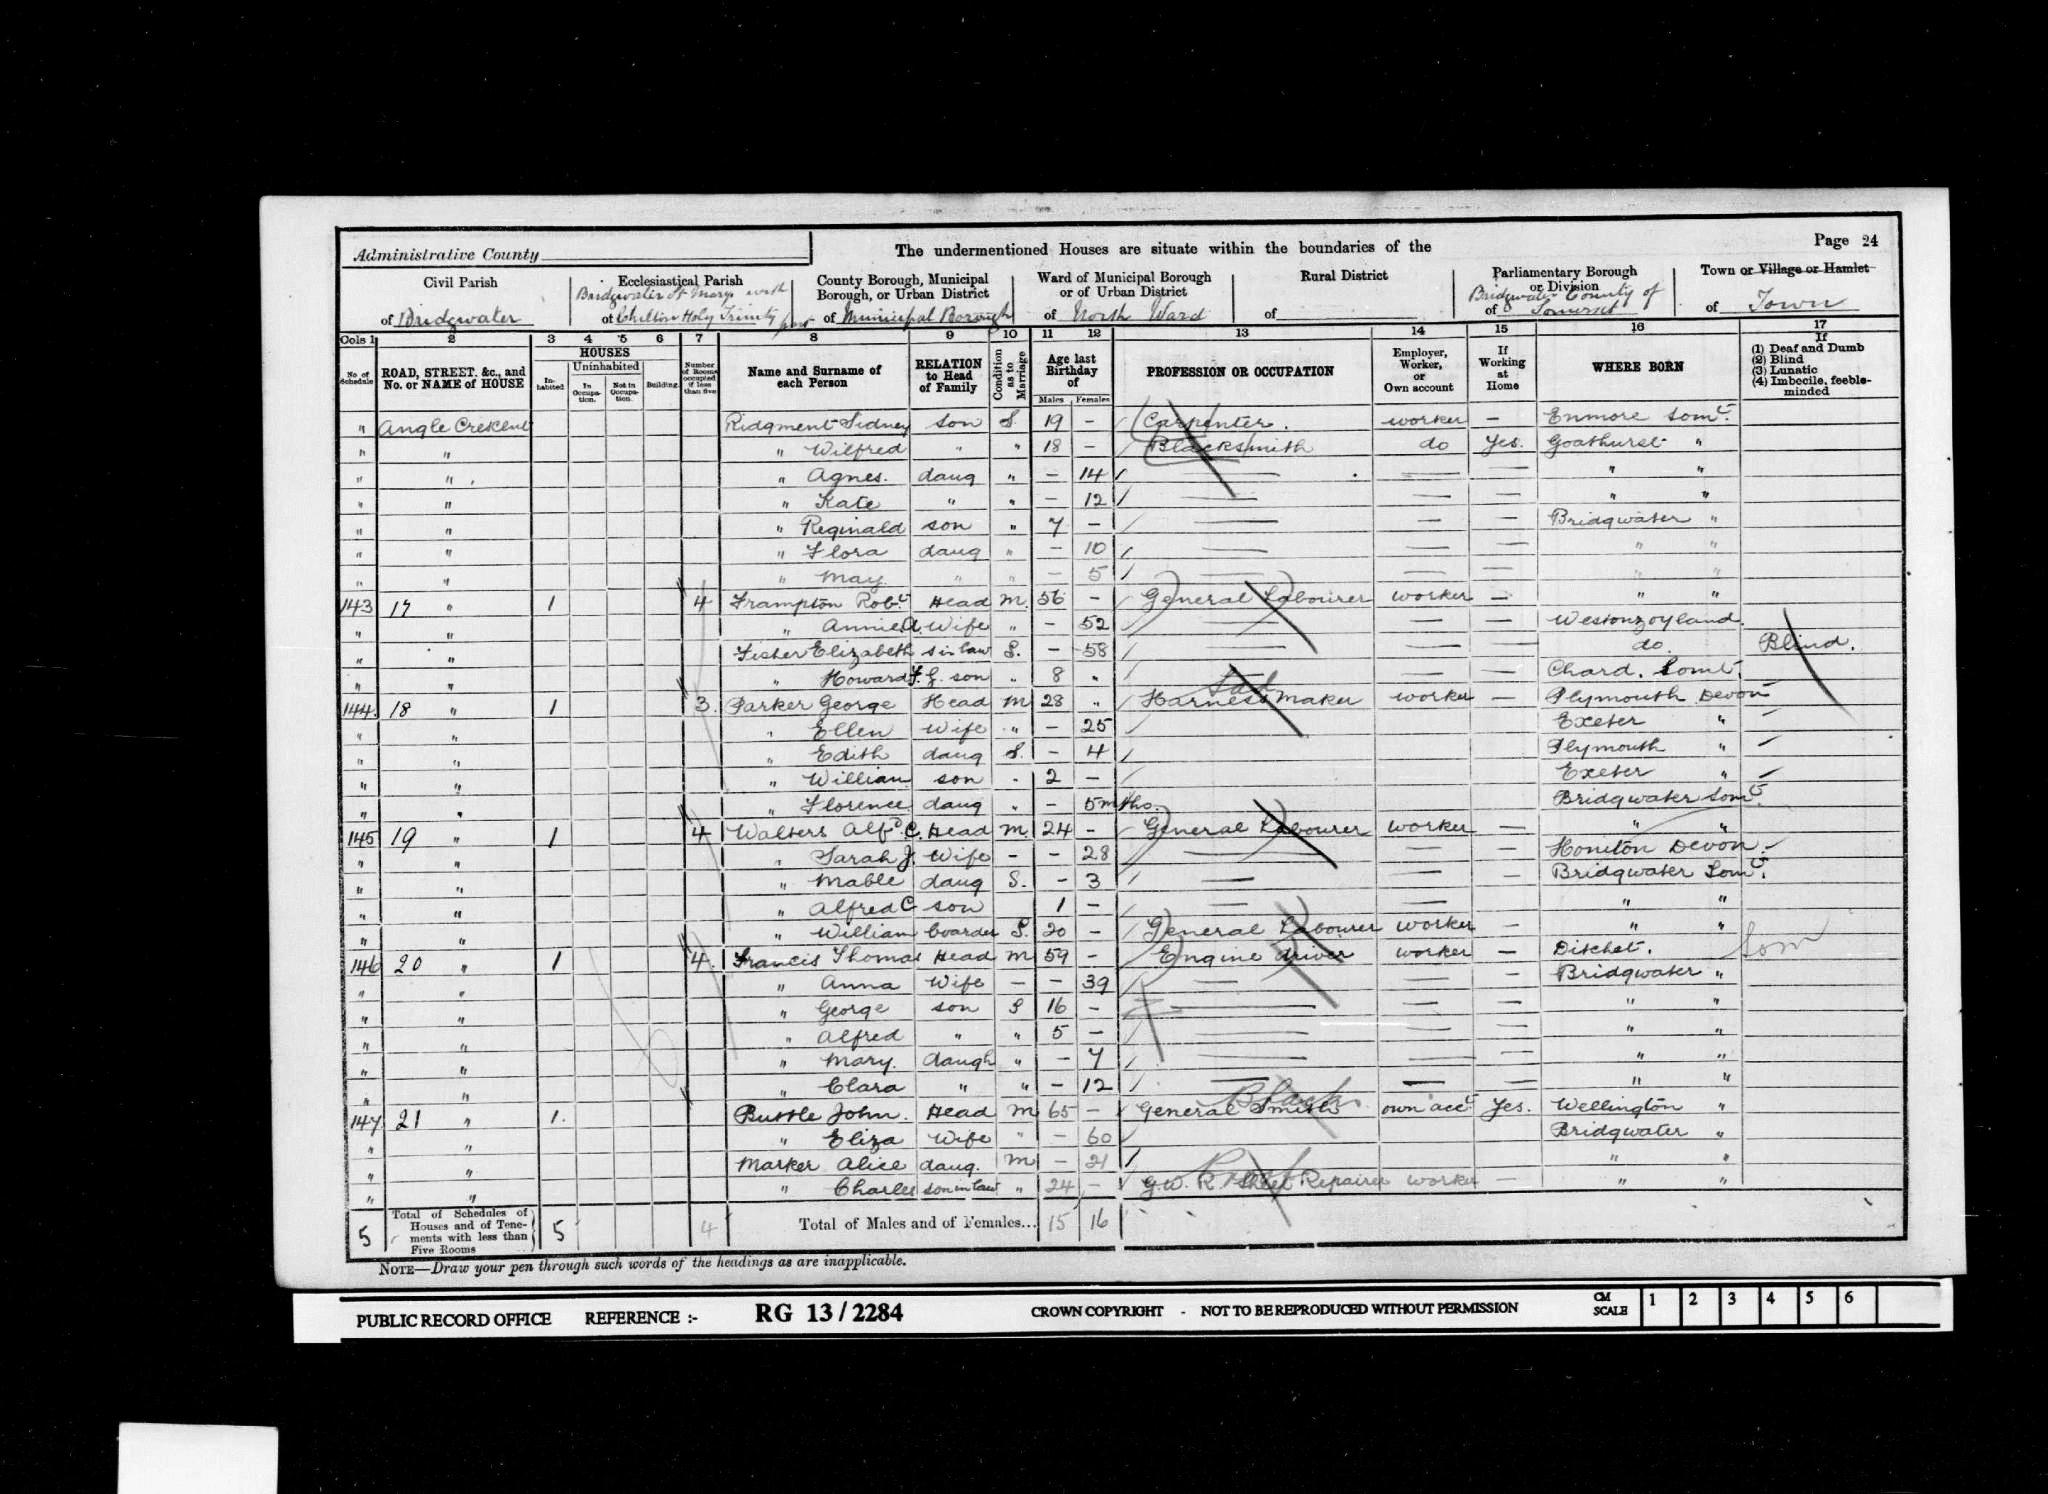 Administrative County
The undermentioned Houses are situate within the boundaries of the
Page 24
Civil Parish
of Bridgwater
Ecclesiastical Parish
Bridgwater St Mary with
of Chilton Holy Trinity part
County Borough, Municipal
Borough, or Urban District
of Municipal Borough
Ward of Municipal Borough
or of Urban District
of North Ward
Rural District
of
Parliamentary Borough
or Division
Bridgwater County of
of Somerset
Town or Village or Hamlet
of Town
Cols 1 2 3 4 5 6 7 8 9 10 11 12 13 14 15 16 17
No. of Schedule
ROAD, STREET, &c., and No. or NAME of HOUSE
HOUSES
Inhabited
Uninhabited
In Occupation.
Not in Occupation.
Building.
Number of Rooms occupied if less than five
Name and Surname of each Person
RELATION to Head of Family
Condition as to Marriage
Age last Birthday of
Males Females
PROFESSION OR OCCUPATION
Employer, Worker, or Own account
If Working at Home
WHERE BORN
If
(1) Deaf and Dumb
(2) Blind
(3) Lunatic
(4) Imbecile, feeble-minded
" Angle Crescent Ridgment Sidney son S. 19 – Carpenter. worker – Enmore Somt.
" " " Wilfred " " 18 – Blacksmith do Yes. Goathurst "
" " " Agnes. daug " – 14 — — — " "
" " " Kate " " – 12 — — — " "
" " " Reginald son " 7 – — — — Bridgwater "
" " " Flora daug " – 10 — — — " "
" " " May " " – 5 — — — " "
143 17 " 1 4 Frampton Robt. Head M. 56 – General Labourer worker – " "
" " " Annie A. Wife " – 52 — — — Westonzoyland.
" " Fisher Elizabeth s in law S. – 58 — — — do. Blind.
" " " Howard F. G. son " 8 " — — — Chard. Somt.
144. 18 " 1 3. Parker George Head M 28 " Harness Maker worker – Plymouth Devon
" " " Ellen Wife " – 25 Exeter "
" " " Edith daug S. – 4 Plymouth "
" " " William son " 2 – Exeter "
" " " Florence. daug " – 5 mths. Bridgwater Somt.
145 19 " 1 4 Walters Alfd C. Head M. 24 – General Labourer worker — " "
" " " Sarah J. Wife – – 28 — — — Honiton Devon.
" " " Mable daug S. – 3 — — — Bridgwater Somt.
" " " Alfred C son 1 – — — — " "
" " " William boarder S. 20 – General Labourer worker – " "
146 20 " 1 4. Francis Thomas Head M 59 – Engine driver worker – Ditchet. Som
" " " Anna Wife – – 39 — — – Bridgwater "
" " " George son S 16 – — — — " "
" " " Alfred " " 5 – — — — " "
" " " Mary. daugh " – 7 — — — " "
" " " Clara " " – 12 — — — " "
Black
147 21 " 1. Buttle John. Head M 65 – General Smith own acct Yes. Wellington "
" " " Eliza Wife " – 60 Bridgwater "
" " Marker Alice daug. M – 21 " "
" " " Charles son in law " 24 – G.W.R. Sheet Repairer worker – " "
5 Total of Schedules of Houses and of Tenements with less than Five Rooms 5 4 Total of Males and of Females... 15 16
NOTE—Draw your pen through such words of the headings as are inapplicable.
PUBLIC RECORD OFFICE REFERENCE :- RG 13 / 2284 CROWN COPYRIGHT - NOT TO BE REPRODUCED WITHOUT PERMISSION CM SCALE 1 2 3 4 5 6